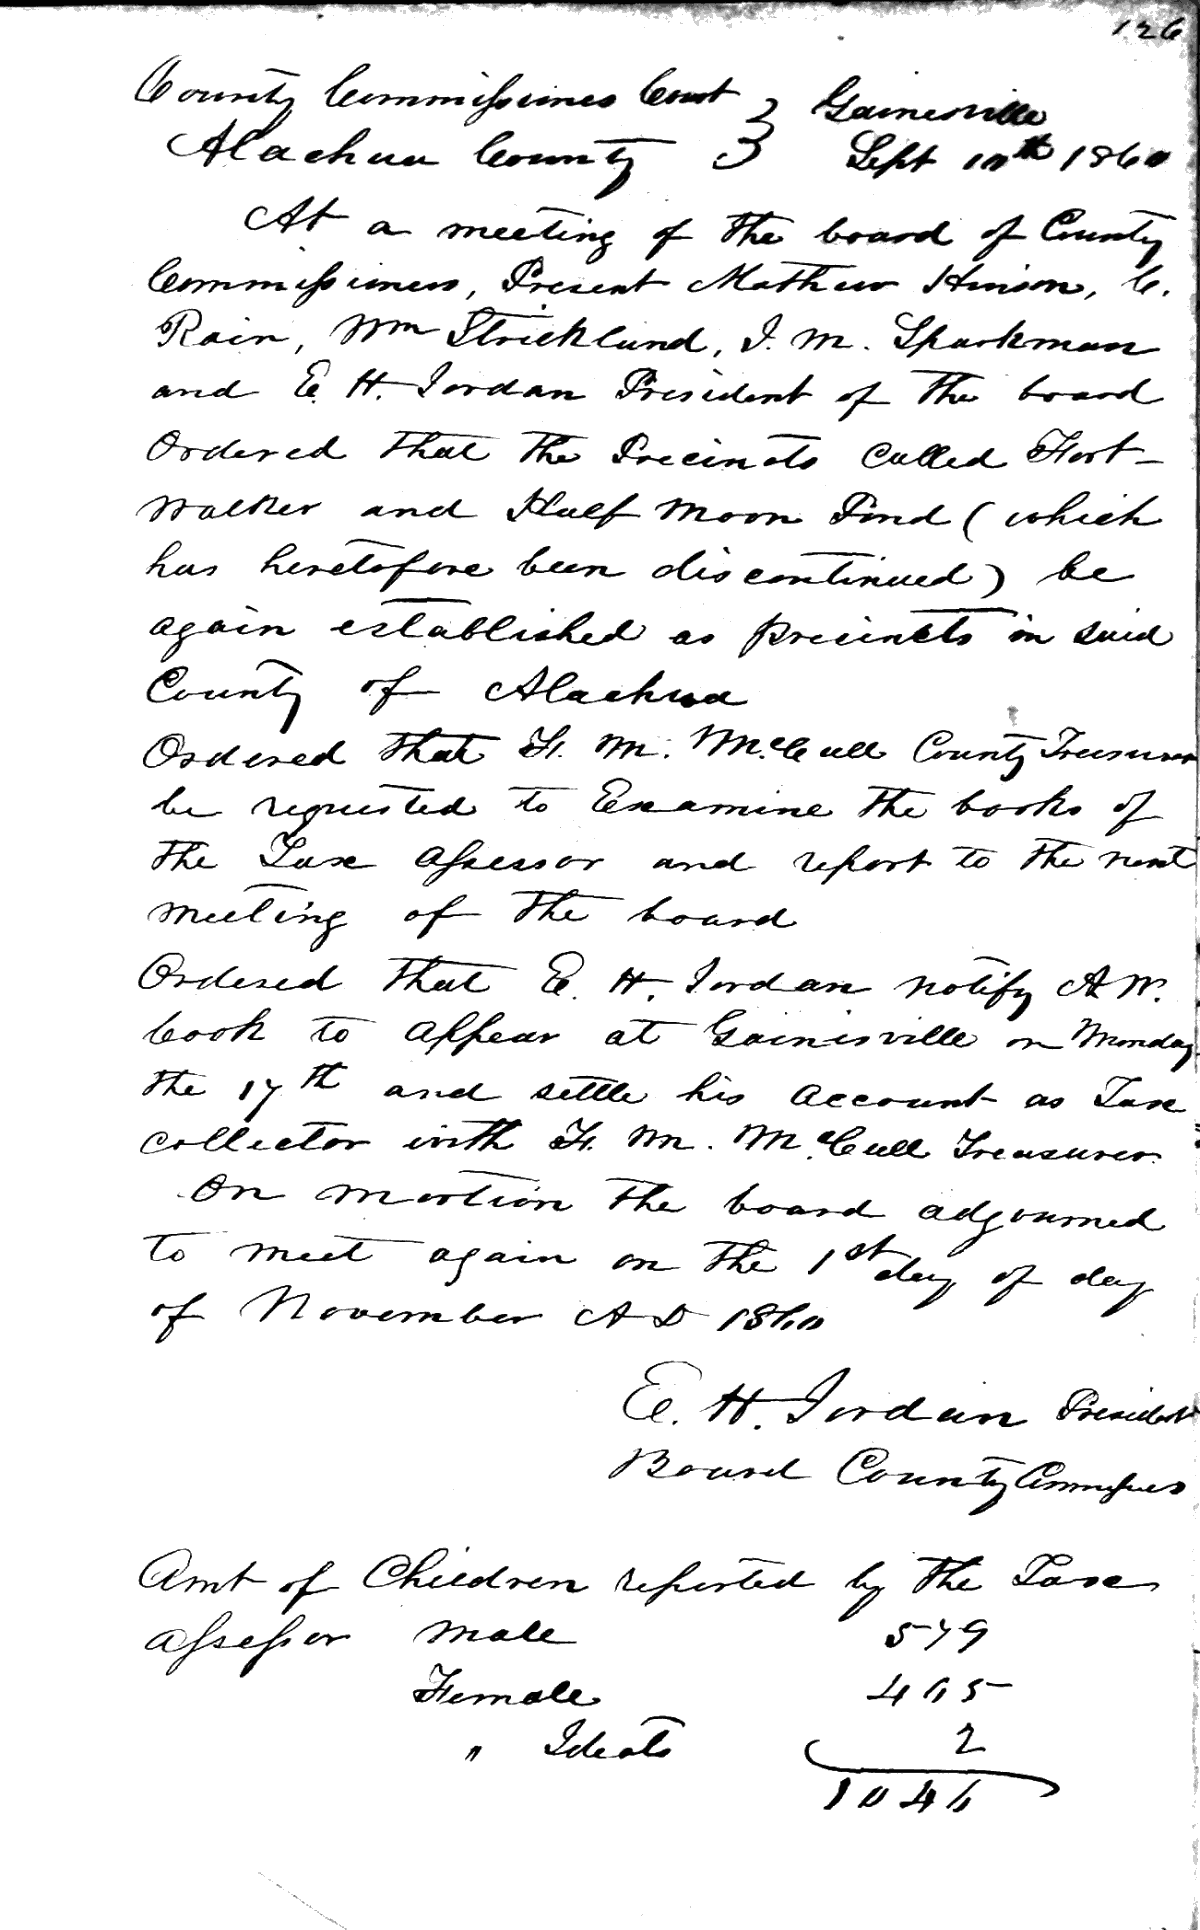 126
County Commissiones Court } Gainesville
Alachua County } Sept 10th 1860
At a meeting of the board of County
Commissioners, Present Mathew Hinson, C.
Rain, Wm Strickland, J. M. Sparkman
and E. H. Jordan President of the board
Ordered that the Precincts called Fort-
Walker and Half Moon Pond (which
has heretofore been discontinued) be
again established as precincts in said
County of Alachua
Ordered that F. M. McCall County Treasurer
be requested to Examine the books of
the Tax Assessor and report to the next
meeting of the board
Ordered that E. H. Jordan notify A. W.
Cook to appear at Gainesville on Monday
the 17th and settle his account as Tax
collector with F. M. McCall Treasurer.
On mortion the board adgourned
to meet again on the 1st day of day
of November A D 1860
E. H. Jordan President
Board County Commissiones
Amt of Children reported by the Tax
assessor Male 579
Female 465
" Ideots 2
1046